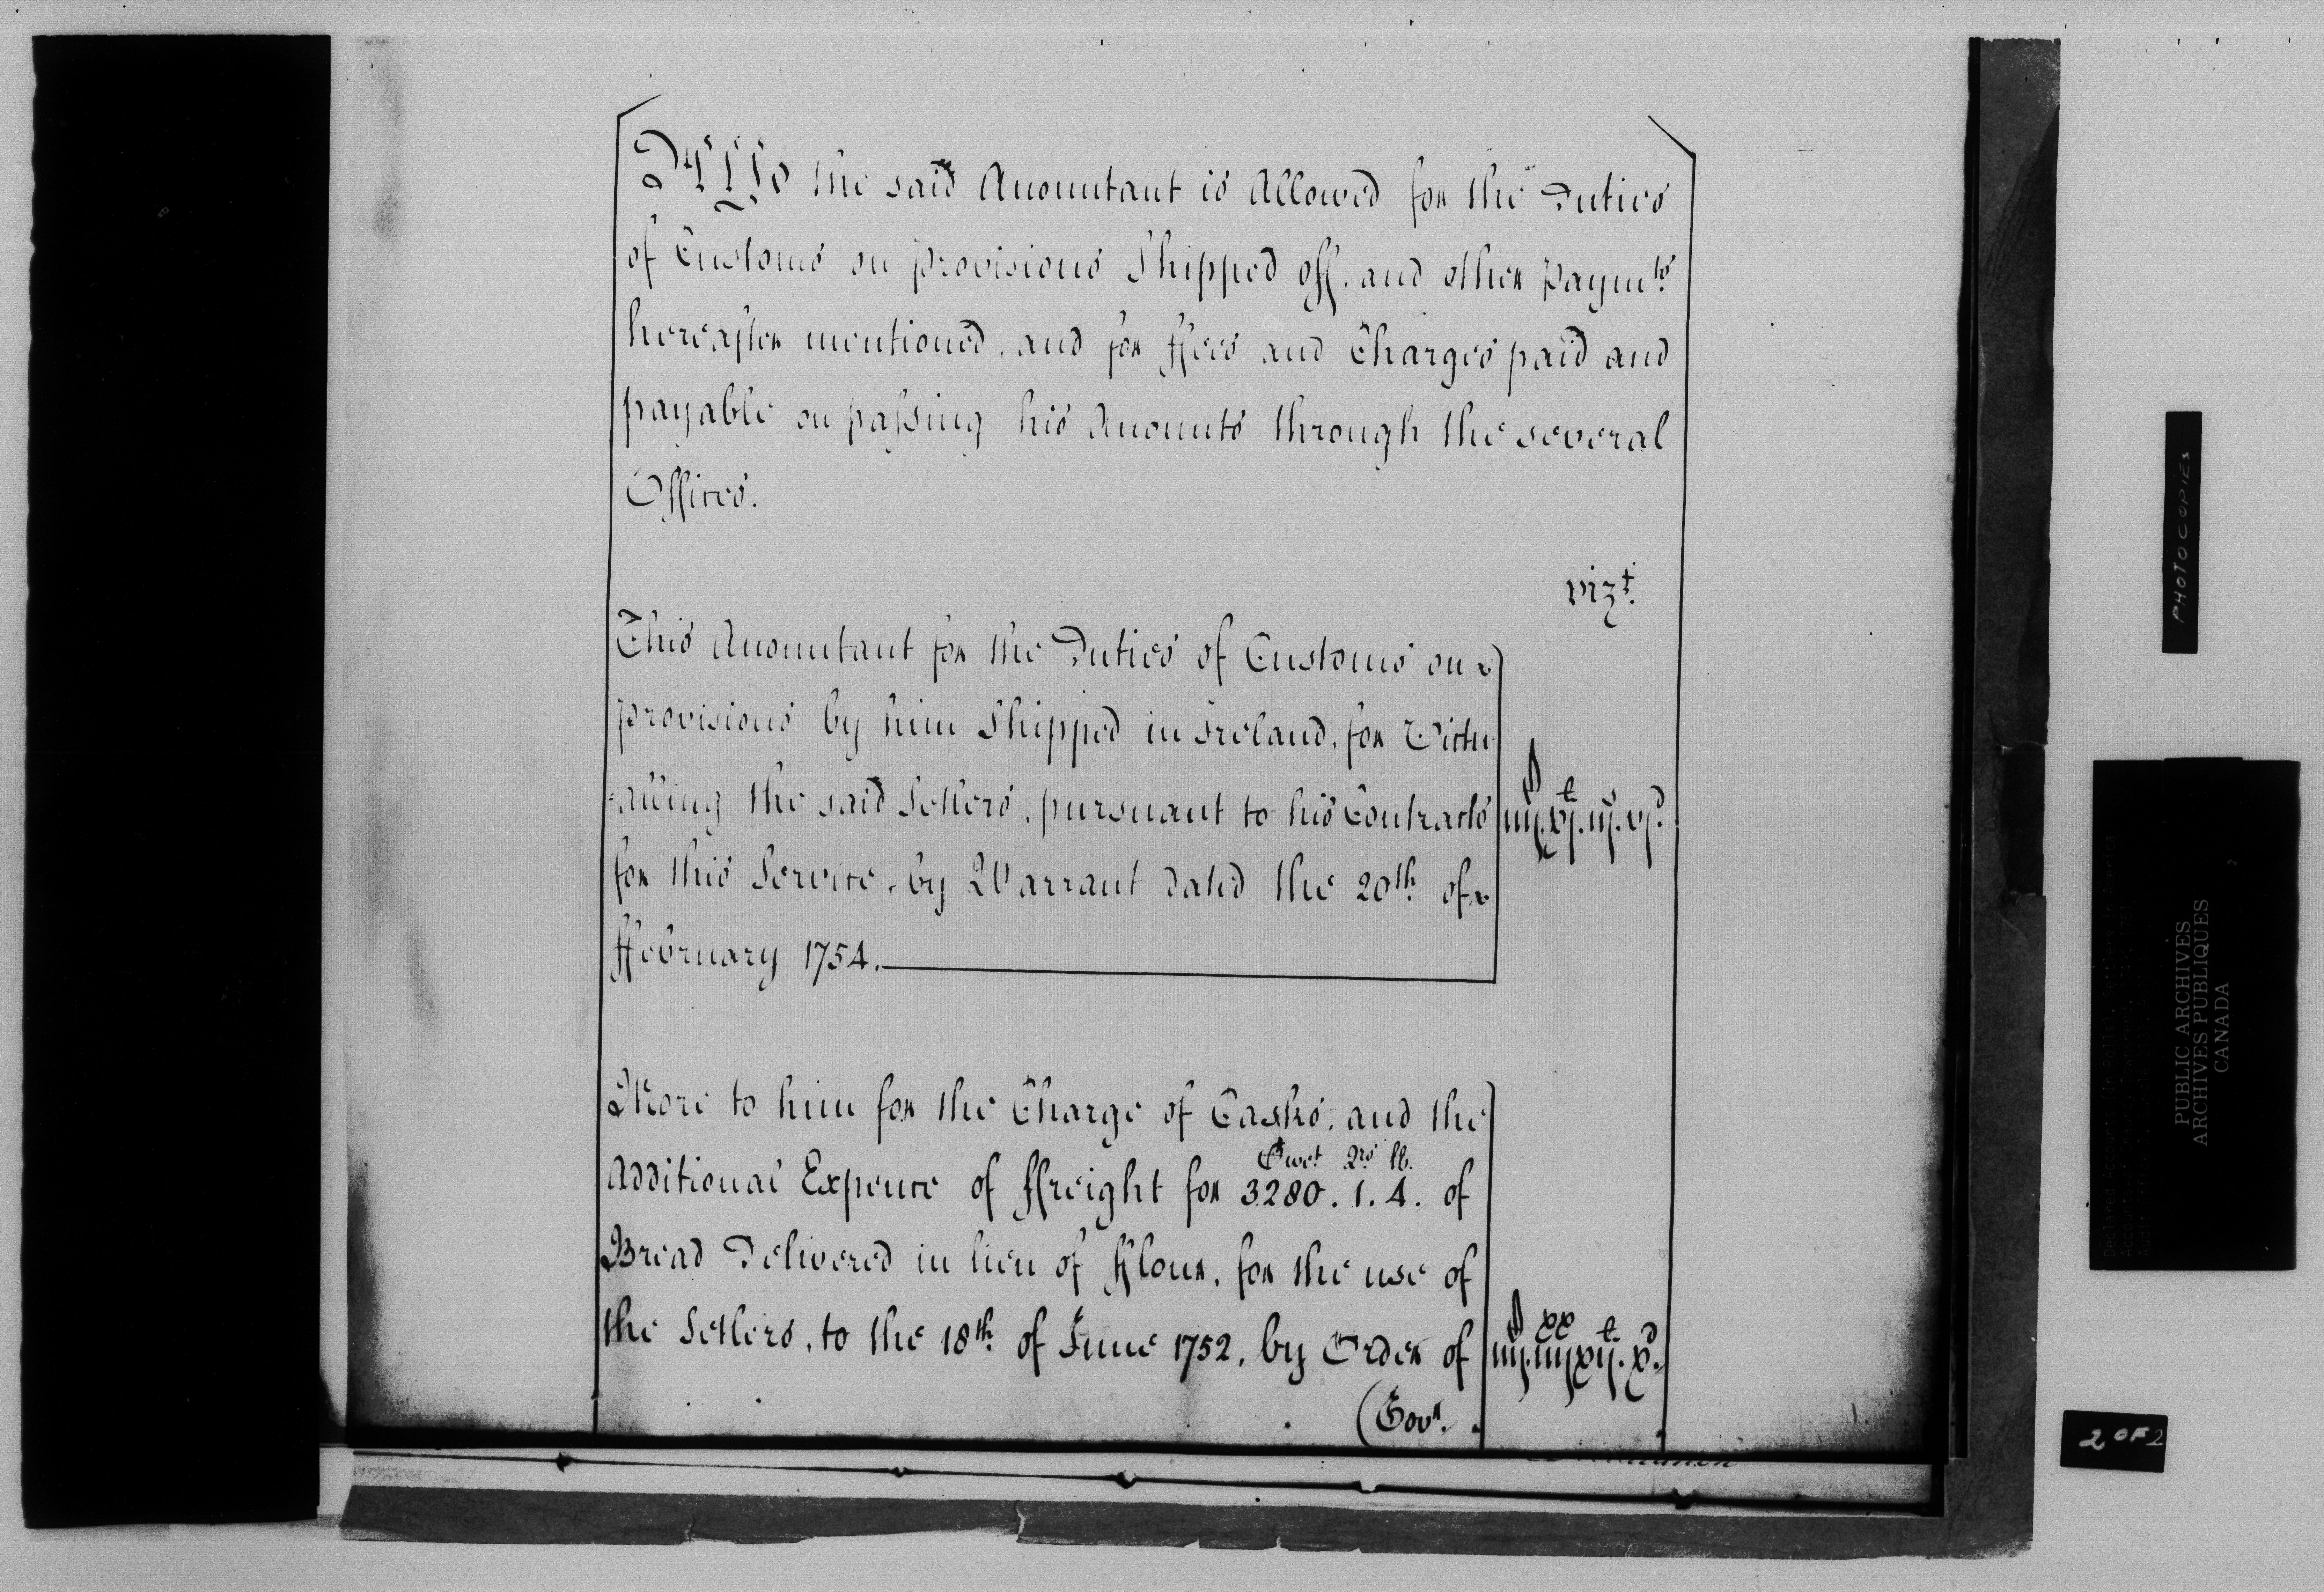 Also the said Accomptant is Allowed for the Duties
of Customs on provisions Shipped off, and other paymts.
hereafter mentioned, and for ffees and Charges paid and
payable on passing his Accompts through the several
Offices.
vizt.
This Accomptant for the Duties of Customs on
provisions by him Shipped in Ireland, for Victu
=alling the said Setlers, pursuant to his Contracts
for this Service, by Warrant dated the 20th. of
ffebruary 1754.
More to him for the Charge of Casks, and the
Cwt. Qrs. lb.
Additional Expence of ffreight for 3280. 1. 4. of
Bread Delivered in lieu of fflour, for the use of
the Setlers, to the 18th. of June 1752, by Order of
(Govr.
PHOTOCOPIES
PUBLIC ARCHIVES
ARCHIVES PUBLIQUES
CANADA
2 OF 2